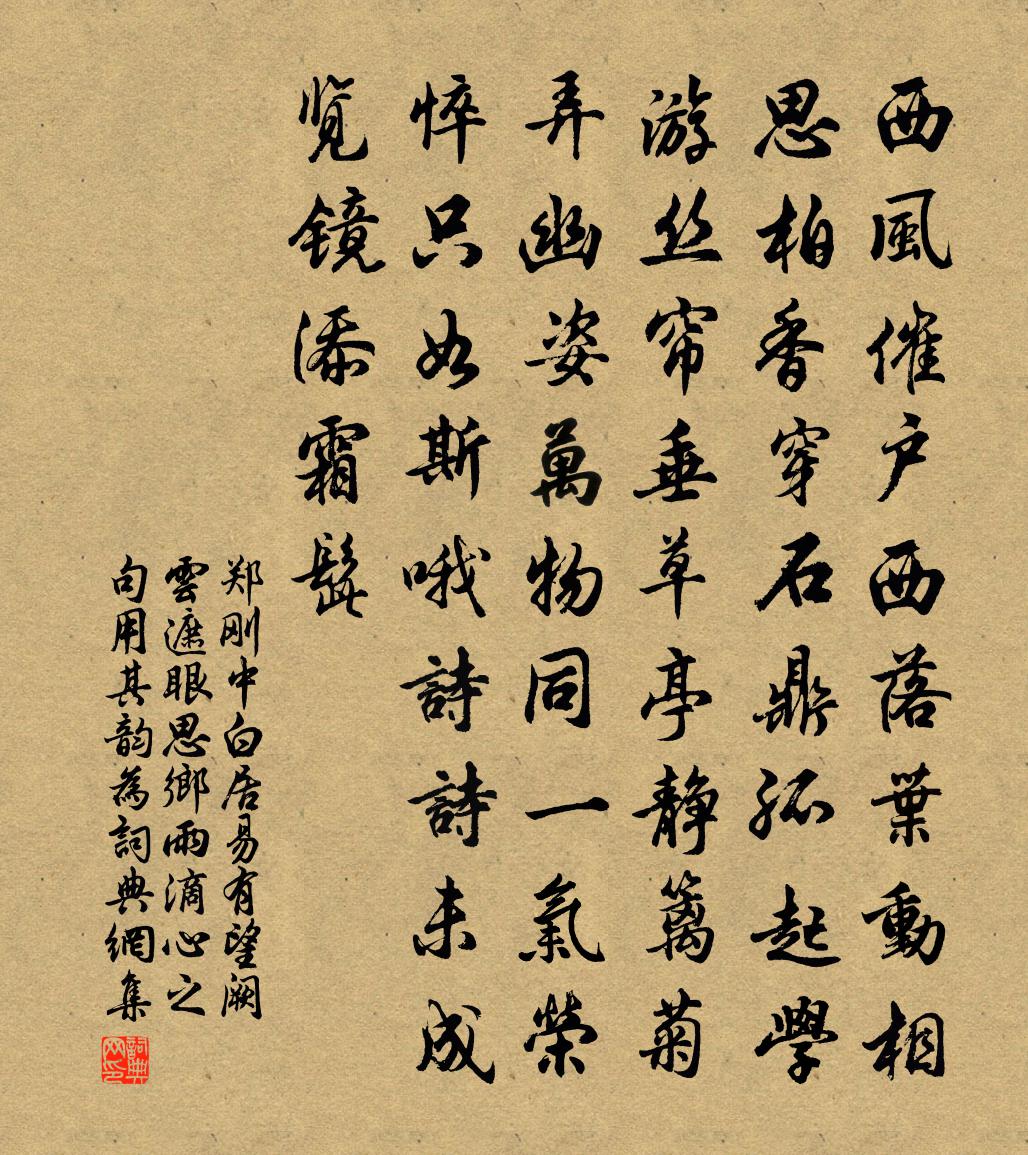 西風催户西落葉動相
思柏香穿石鼎孤起學
游丝帘垂草亭静篱菊
弄幽姿萬物同一氣榮
悴只如斯哦詩詩未成
览镜添霜髭
郑刚中白居易有望阙
雲遮眼思鄉雨滴心之
句用其韵為詞典網集
詞典网印